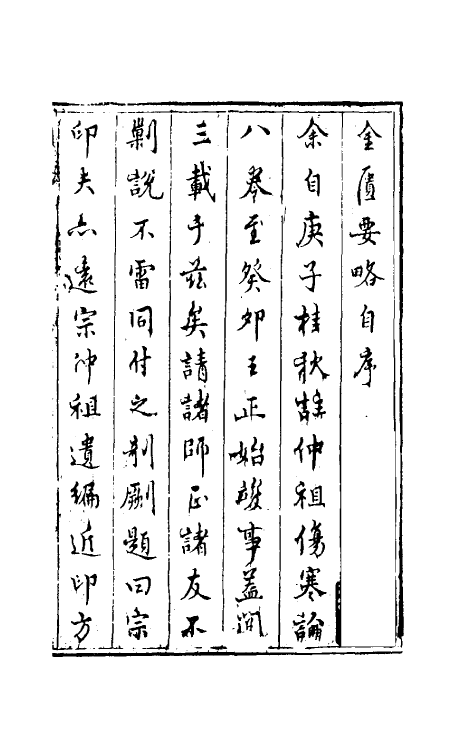 金匱要略自序
余自庚子桂秋詮仲祖傷寒論
八卷至癸卯王正始竣事蓋閱
三載于茲矣請諸師正諸友不
剿說不雷同付之剞劂題曰宗
印夫亦遠宗仲祖遺編近印方